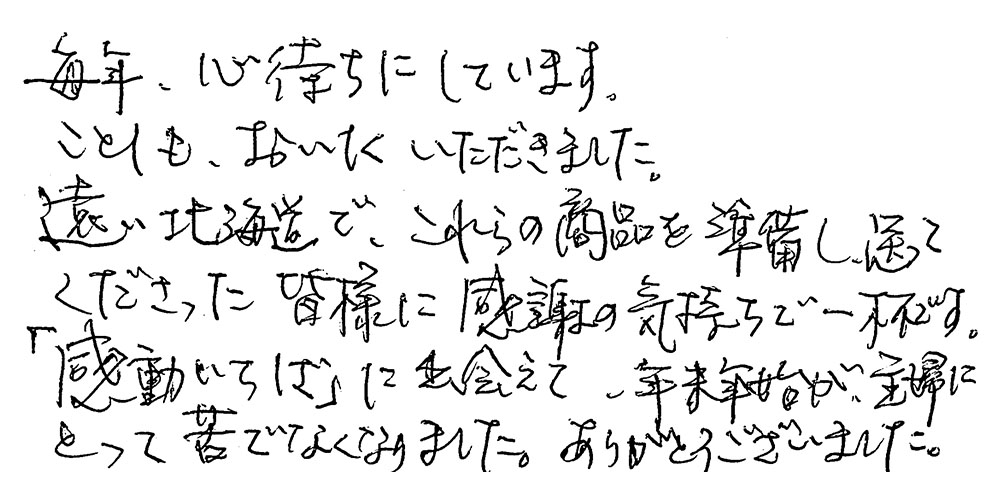 毎年、心待ちにしています。
ことしも、おいしく いただきました。
遠い北海道で、これらの商品を準備し、送って
くださった 皆様に 感謝の気持ちで一杯です。
「感動いちば」に出会えて、年末年始が、主婦に
とって 苦でなくなりました。ありがとうございました。